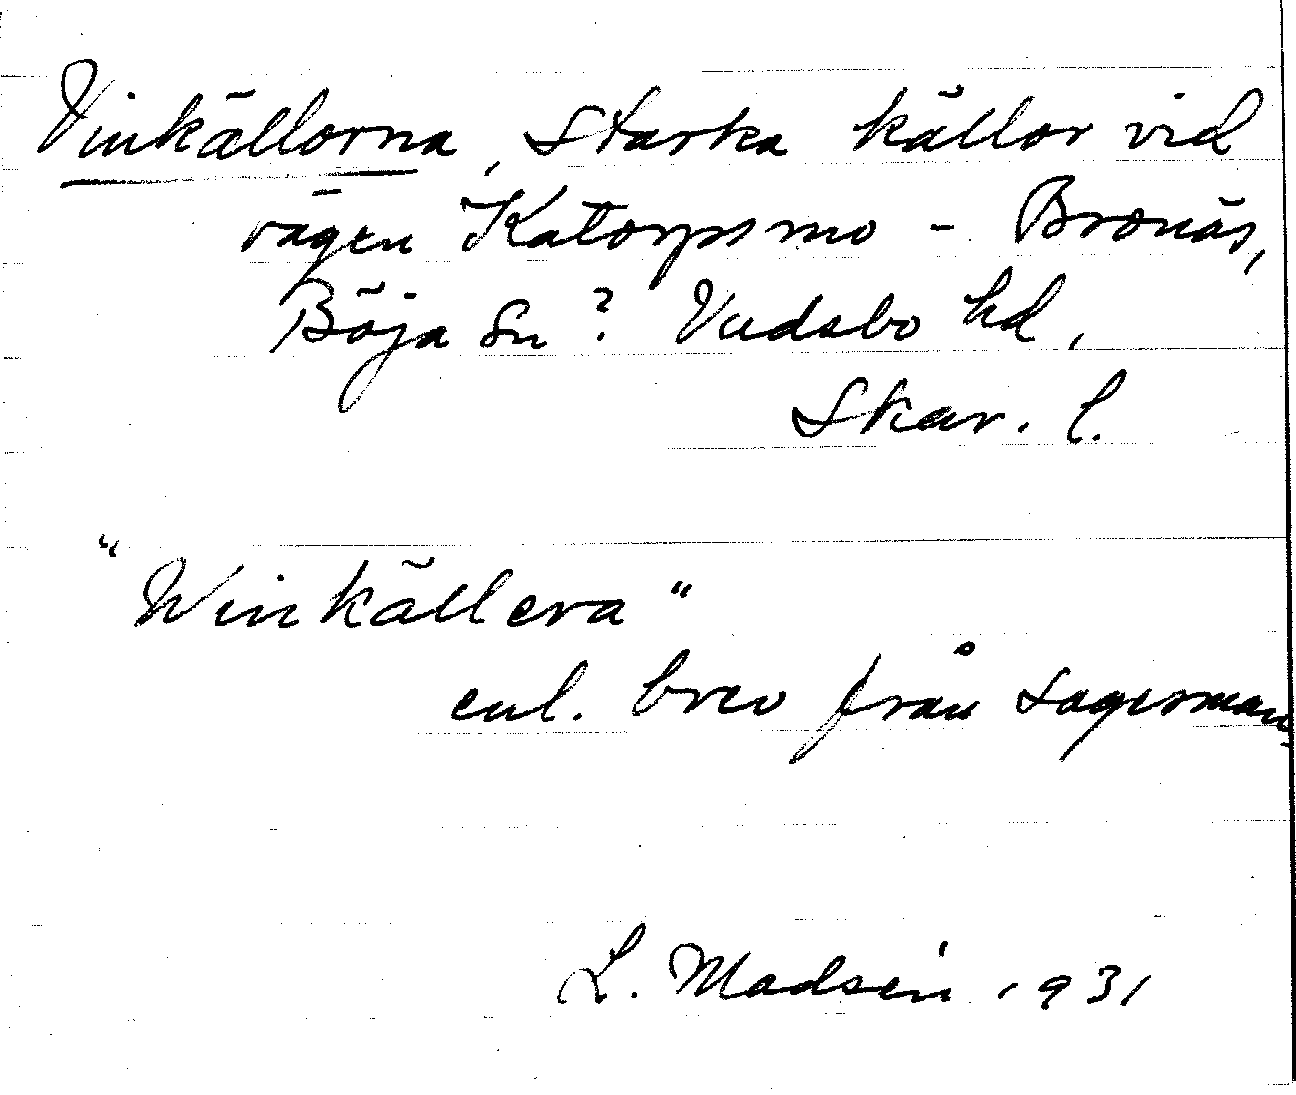 Vinkällorna, starka källor vid
vägen Katorpsmo - Bronäs,
Böja sn? Vadsbo hd,
Skar. l.
"Winkällera"
enl. brev från Lagerman
L. Madsén 1931